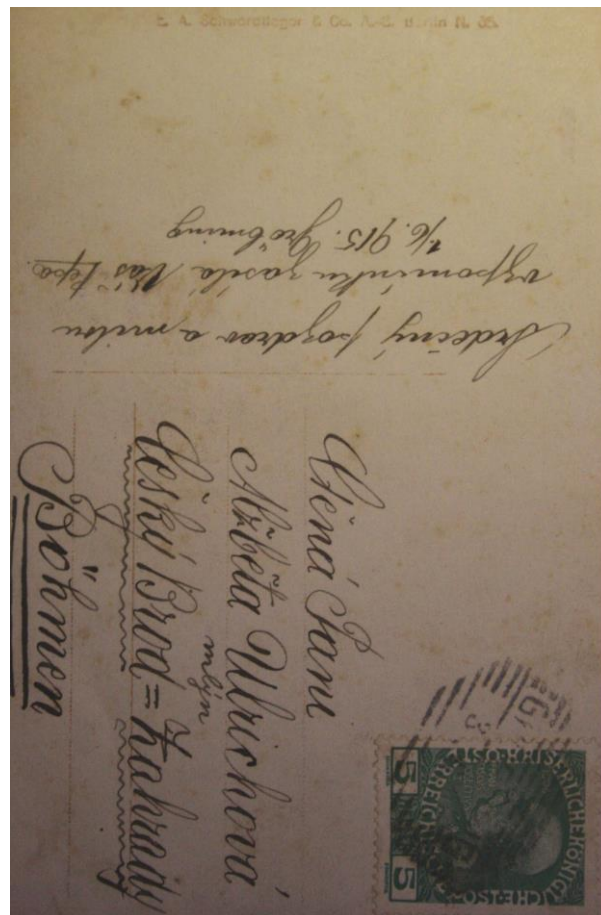 E. A. Schwerdtfeger & Co. A.-G. Berlin N. 65.
Srdečný pozdrav a milou
vzpomínku zasílá Váš Pepa.
4/6. 915. Gröbming
Ctěná Paní
Alžběta Ulrichová
mlýn
Český Brod = Zahrady
Böhmen
KAISERLICHE KÖNIGL
5 5